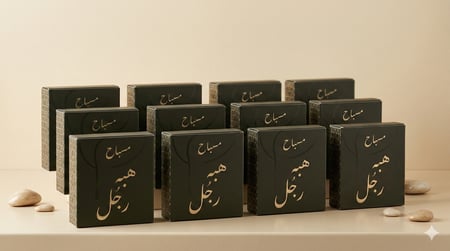 مسباح
مسباح
مسباح
مسباح
مسباح
مسباح
مسباح
مسباح
مسباح
هبه
رجُل
مسباح
هبه
رجُل
مسباح
هبه
رجُل
مسباح
هبه
رجُل